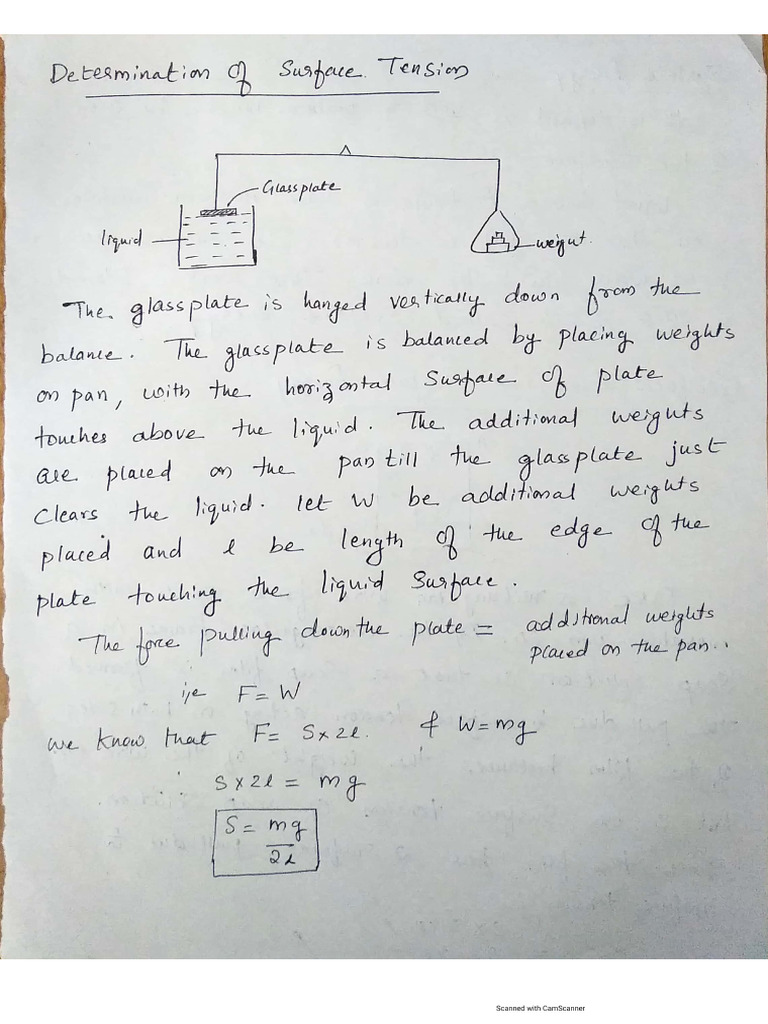 Determination of Surface Tension
Glassplate
liquid
weigut.
The glassplate is hanged vertically down from the
balance. The glassplate is balanced by placing weights
on pan, with the horizontal surface of plate
touches above the liquid. The additional weights
are placed on the pan till the glassplate just
clears the liquid. let W be additional weights
placed and l be length of the edge of the
plate touching the liquid surface.
The force pulling down the plate = additional weights
placed on the pan..
i,e F = W
we know that F = S x 2l. & W = mg
∴ S x 2l = mg
S = mg
2l
Scanned with CamScanner